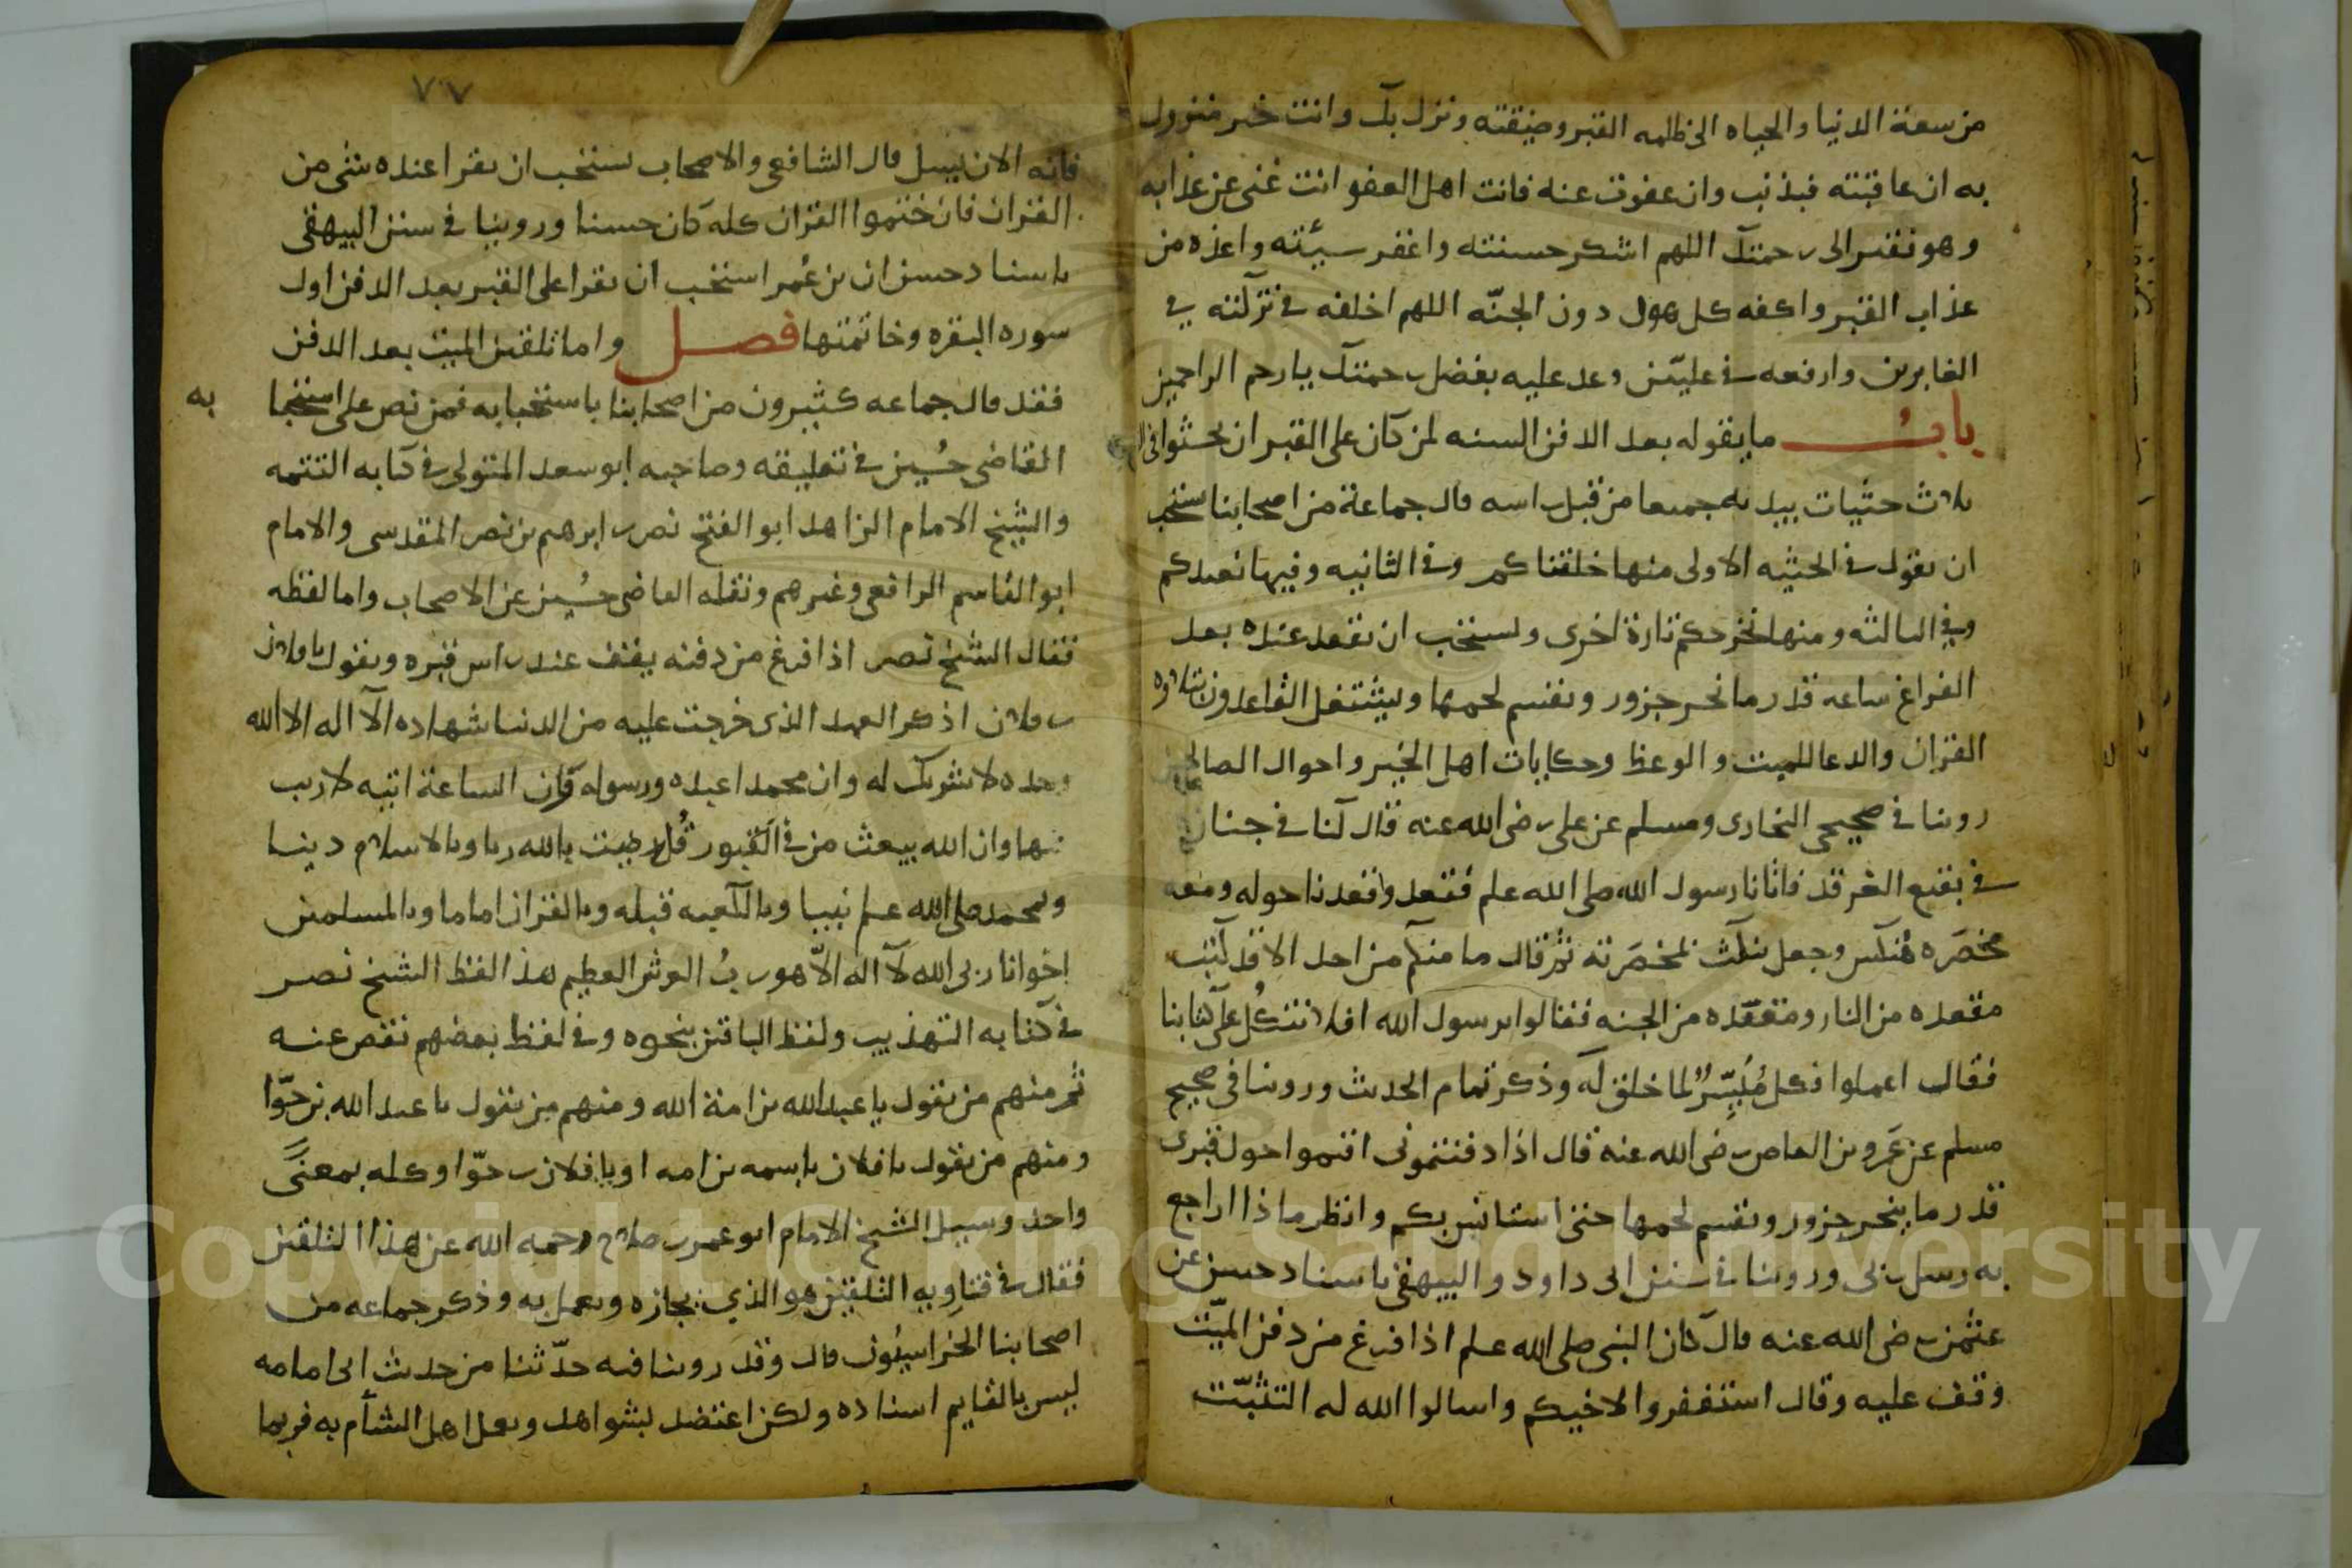 من سعة الدنيا والحياه الى ظلمه القبر وضيقته ونزل بك وانت خير منزول
به ان عاقبته فبذنب وان عفوت عنه فانت اهل العفو انت غنى عن عذابه
وهو فقير الى رحمتك اللهم اشكر حسنته واغفر سيئته واعذه من
عذاب القبر واكفه كل هول دون الجنّه اللهم اخلفه في تركته في
الغابرين وارفعه في عليّين وعد عليه بفضل رحمتك يا ارحم الراحمين
باب ما يقوله بعد الدفن السنه لمن كان على القبر ان يحثوا في
ثلاث حثيات بيديه جميعا من قبل راسه قال جماعة من اصحابنا يستحب
ان يقول في الحثيه الاولى منها خلقناكم وفي الثانيه وفيها نعيدكم
وفي الثالثه ومنها نخرجكم تارة اخرى ويستحب ان يقعد عنده بعد
الفراغ ساعه قدر ما ينحر جزور ويقسم لحمها ويشتغل القاعدون بتلاوه
القران والدعا للميت والوعظ وحكايات اهل الخير واحوال الصالحين
روينا في صحيحي البخارى ومسلم عن على رضى الله عنه قال كنا في جنازة
في بقيع الغرقد فاتانا رسول الله صلى الله علم فقعد وقعدنا حوله ومعه
مخصَره فنكس وجعل ينكث بمخصَرته ثم قال ما منكم من احد الا قد كتب
مقعده من النار ومقعَده من الجنه فقالوا يرسول الله افلا نتكُل على كتابنا
فقال اعملوا فكل مُيَسِّرٌ لما خلق له وذكر تمام الحديث وروينا في صحيح
مسلم عن عَمرو بن العاص رضى الله عنه قال اذا دفنتمونى اقيموا حول قبرى
قدر ما ينحر جزور ويقسم لحمها حتى استانس بكم وانظر ماذا اراجع
به رسل ربى وروينا في سنن ابى داود والبيهقى باسناد حسن عن
عثمن رضى الله عنه قال كان النبى صلى الله علم اذا فرغ من دفن الميّت
وقف عليه وقال استغفروا لاخيكم واسالوا الله له التثبّت
٧٧
فانه الان يسل قال الشافعى والاصحاب يستحب ان يقرا عنده شى من
القران فان ختموا القران كله كان حسنا وروينا في سنن البيهقى
باسناد حسن ان بن عُمر استحب ان يقرا على القبر بعد الدفن اول
سوره البقره وخاتمتها فصل واما تلقين الميت بعد الدفن
فقد قال جماعه كثيرون من اصحابنا باستحبابه فمن نص على استحبا به
القاضى حُسين في تعليقه وصاحبه ابو سعد المتولى في كتابه التتمه
والشيخ الامام الزاهد ابو الفتح نصر بن ابرهيم بن نصر المقدسى والامام
ابو القاسم الرافعى وغيرهم ونقله القاضى حُسين عن الاصحاب واما لفظه
فقال الشيخ نصر اذا فرغ من دفنه يقف عند راس قبره ويقول يا فلان
بن فلان اذكر العهد الذى خرجت عليه من الدنيا شهاده الا اله الا الله
وحده لا شريك له وان محمدا عبده ورسوله وان الساعة اتيه لا ريب
فيها وان الله يبعث من في القبور قُل رضيت بالله ربا وبالاسلام دينا
وبمحمد صلى الله علم نبيا وبالكعبه قبله وبالقران اماما وبالمسلمين
اخوانا ربى الله لا اله الّا هو ربُ العرش العظيم هذا لفظ الشيخ نصر
في كتابه التهذيب ولفظ الباقين بنحوه وفي لفظ بعضهم نقص عنه
ثم منهم من يقول يا عبد الله بن امة الله ومنهم من يقول يا عبد الله بن حوّا
ومنهم من يقول يا فلان باسمه بن امه او يا فلان بن حوّا وكله بمعنًى
واحد وسيل الشيخ الامام ابو عمر بن صلاح رحمه الله عن هذا التلقين
فقال في فتاويه التلقين هو الذي نختاره ونعمل به وذكر جماعه من
اصحابنا الخراسيُون قال وقد روينا فيه حدّثنا من حديث ابى امامه
ليس بالقايم اسناده ولكن اعتضد بشواهد وبعمل اهل الشام به فربما
Copyright © King Saud University